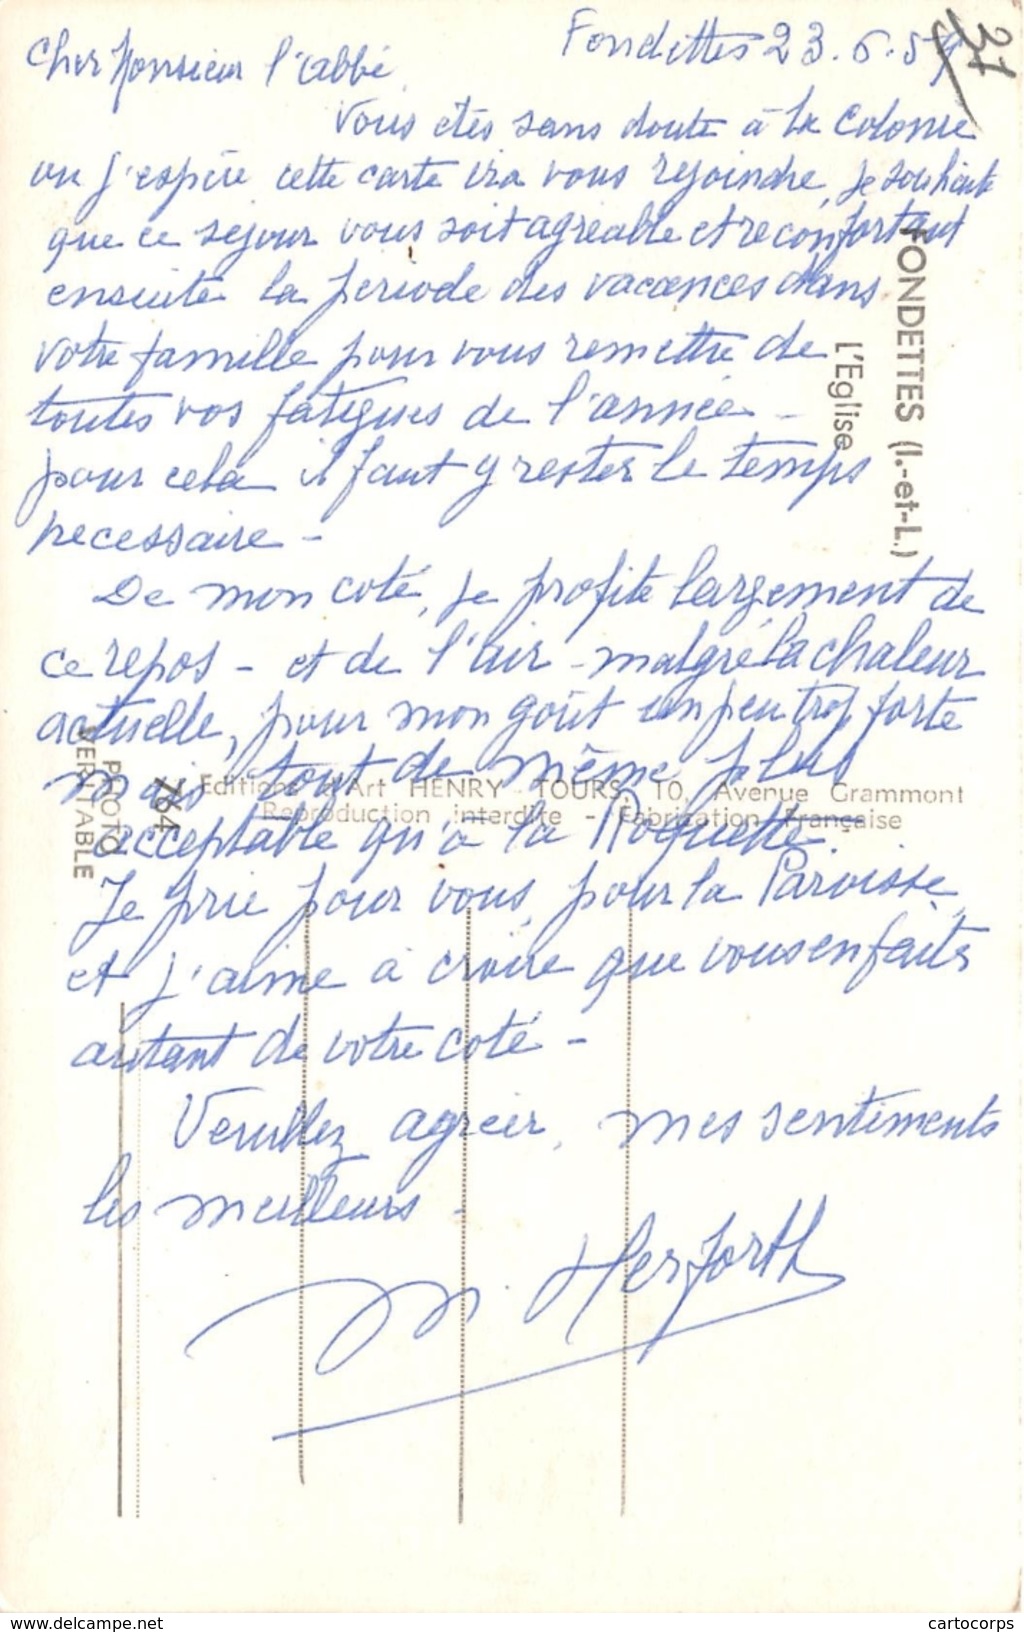 Fondettes 23.6.57
37
Cher Monsieur l'abbé
Vous êtes sans doute à la Colonie
ou j'espère cette carte ira vous rejoindre, je souhaite
que ce séjour vous soit agréable et reconfortant
ensuite la période des vacances dans
votre famille pour vous remettre de
toutes vos fatigues de l'année -
pour cela il faut y rester le temps
necessaire -
De mon coté, je profite largement de
ce repos - et de l'air - malgré la chaleur
actuelle, pour mon goût un peu trop forte
mais tout de même plus
acceptable qu'à la Roquette.
Je prie pour vous, pour la Paroisse,
et j'aime à croire que vous en faites
autant de votre coté -
Veuillez agréer, mes sentiments
les meilleurs -
M. Herforth
FONDETTES (I.-et-L.)
L'Eglise
Editions d'Art HENRY - TOURS, 10, Avenue Grammont
Reproduction interdite - Fabrication Française
764
PHOTO
VERITABLE
https://www.delcampe.net
cartocorps